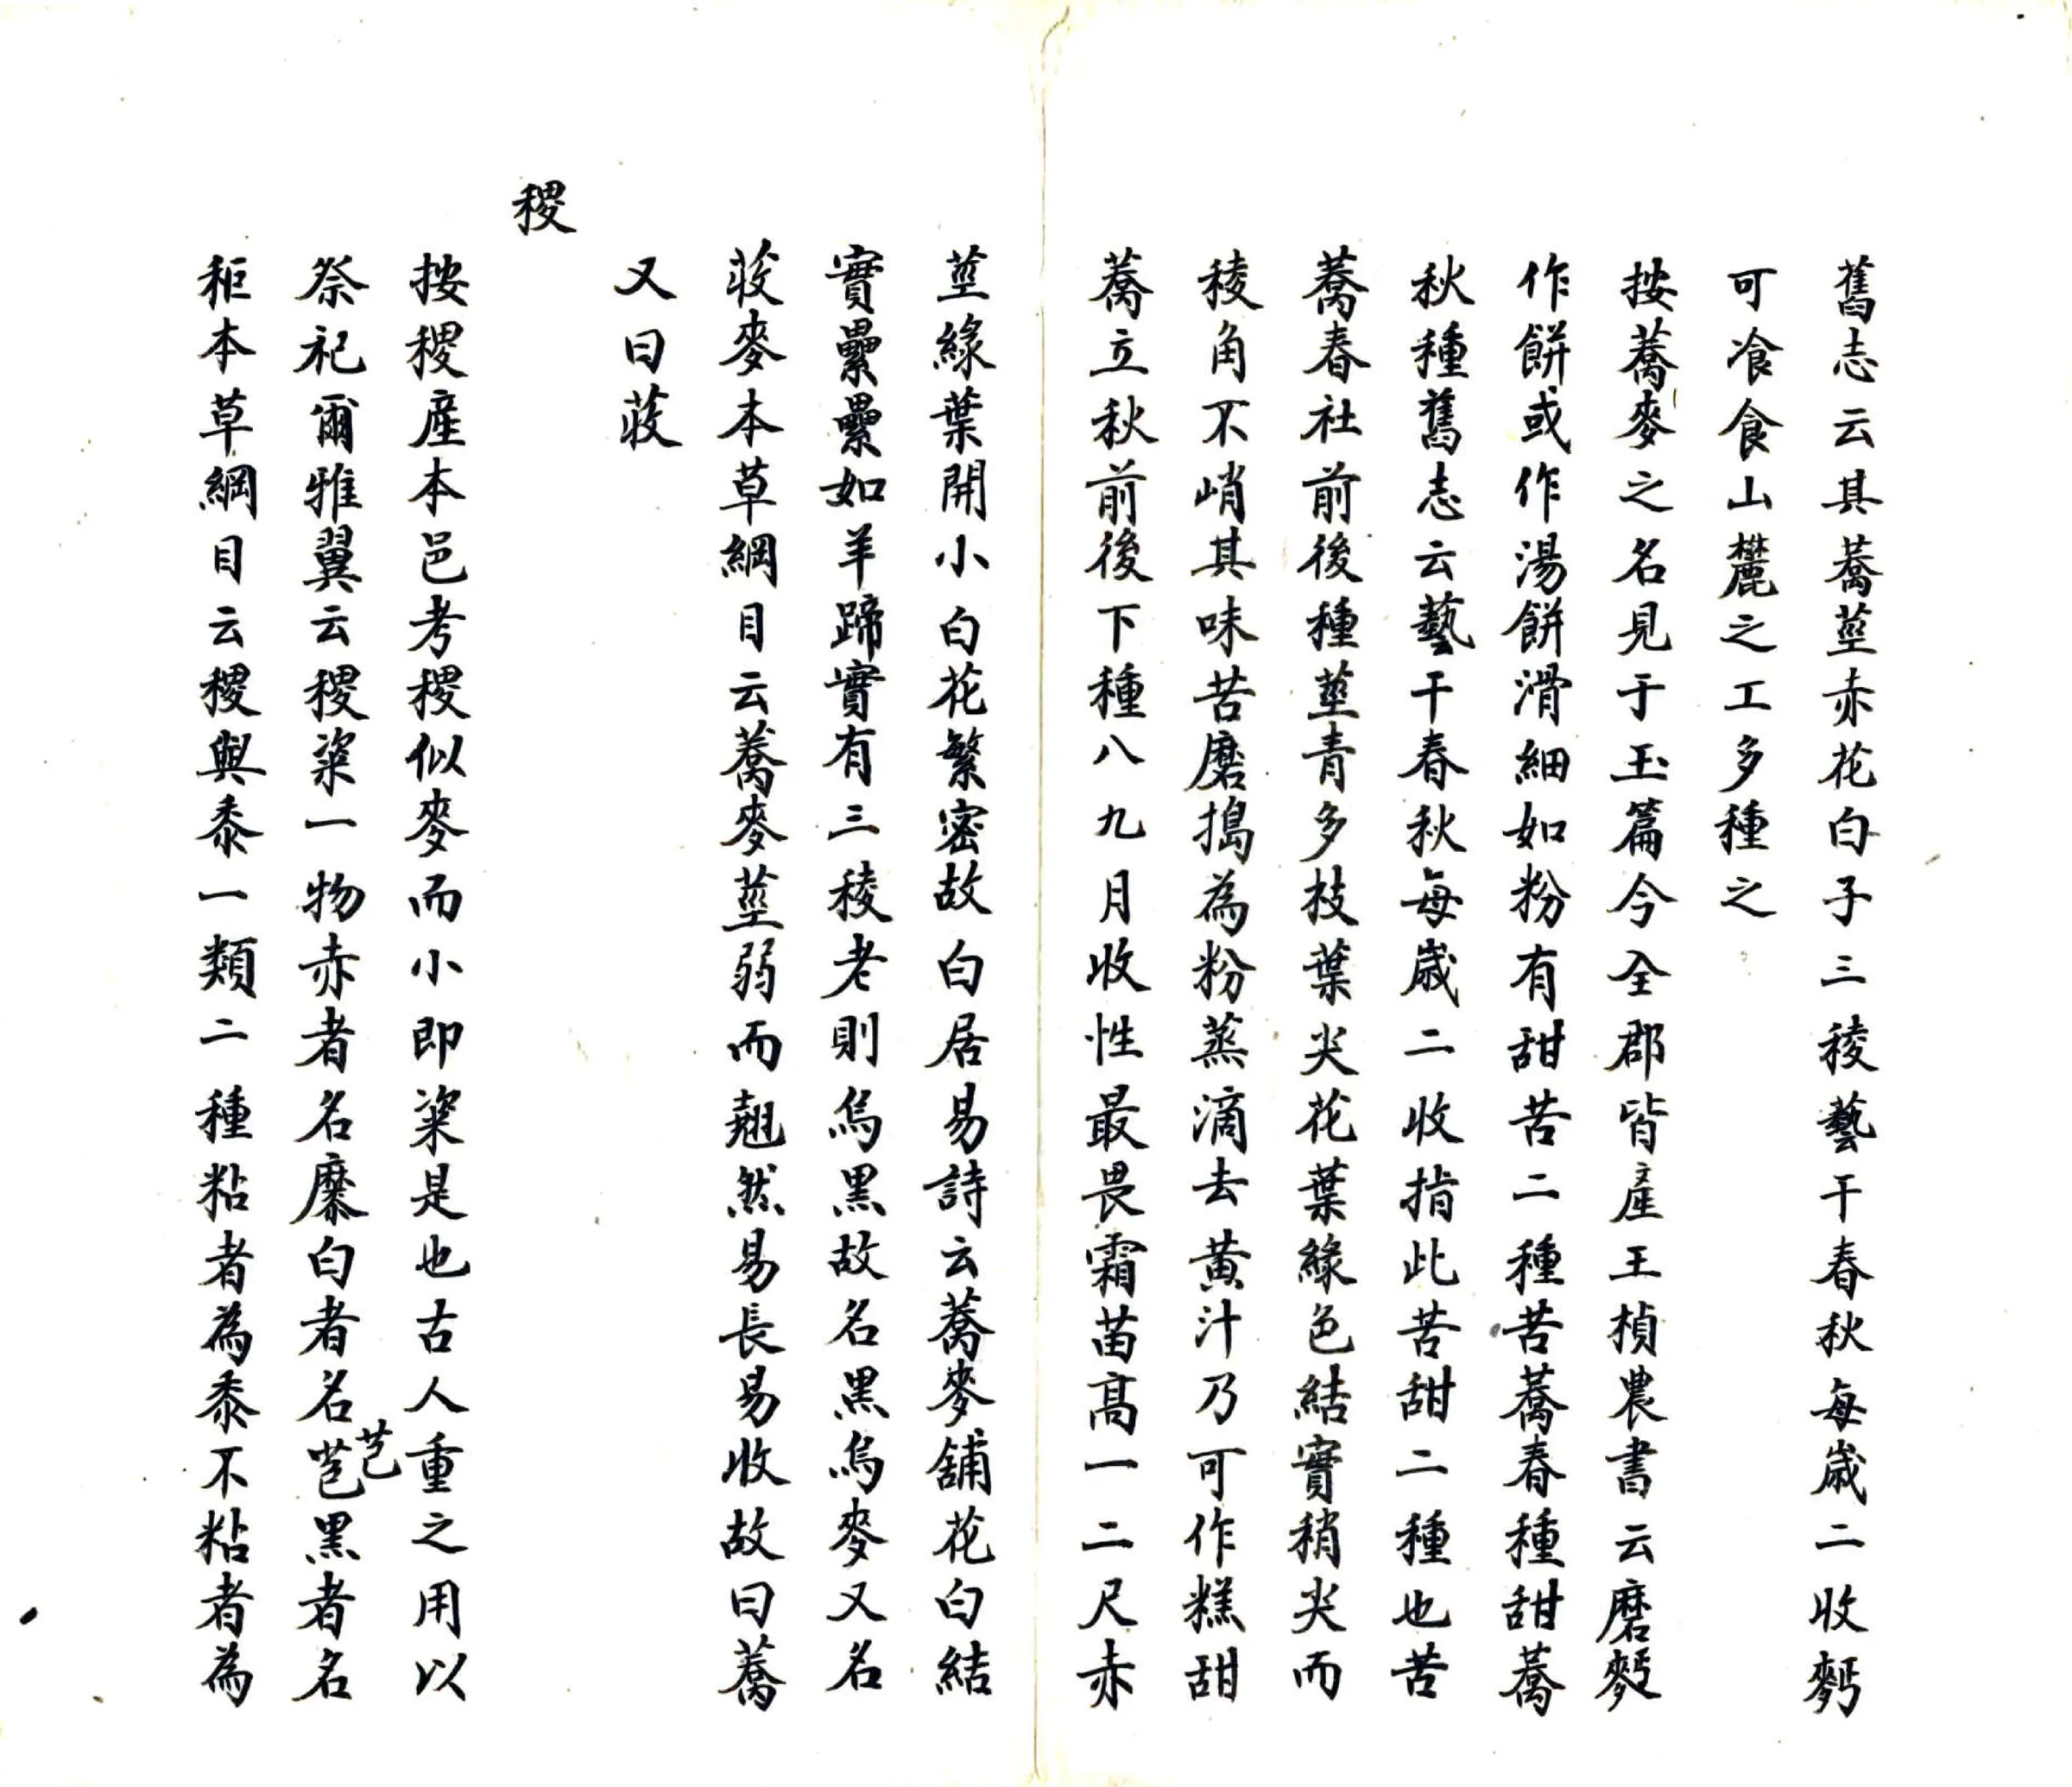 舊志云其蕎莖赤花白子三稜藝于春秋每歲二收麪
可飡食山麓之工多種之
按蕎麥之名見于玉篇今全郡皆產王楨農書云磨麪
作餅或作湯餅滑細如粉有甜苦二種苦蕎春種甜蕎
秋種舊志云藝于春秋每歲二收指此苦甜二種也苦
蕎春社前後種莖青多枝葉尖花葉綠色結實稍尖而
稜角不峭其味苦磨搗為粉蒸滴去黃汁乃可作糕甜
蕎立秋前後下種八九月收性最畏霜苗高一二尺赤
莖綠葉開小白花繁密故白居易詩云蕎麥舖花白結
實纍纍如羊蹄實有三稜老則烏黑故名黑烏麥又名
荍麥本草綱目云蕎麥莖弱而翹然易長易收故曰蕎
又曰荍
稷
按稷產本邑考稷似麥而小即粢是也古人重之用以
祭祀爾雅翼云稷粢一物赤者名穈白者名芑黑者名
秬本草綱目云稷與黍一類二種粘者為黍不粘者為